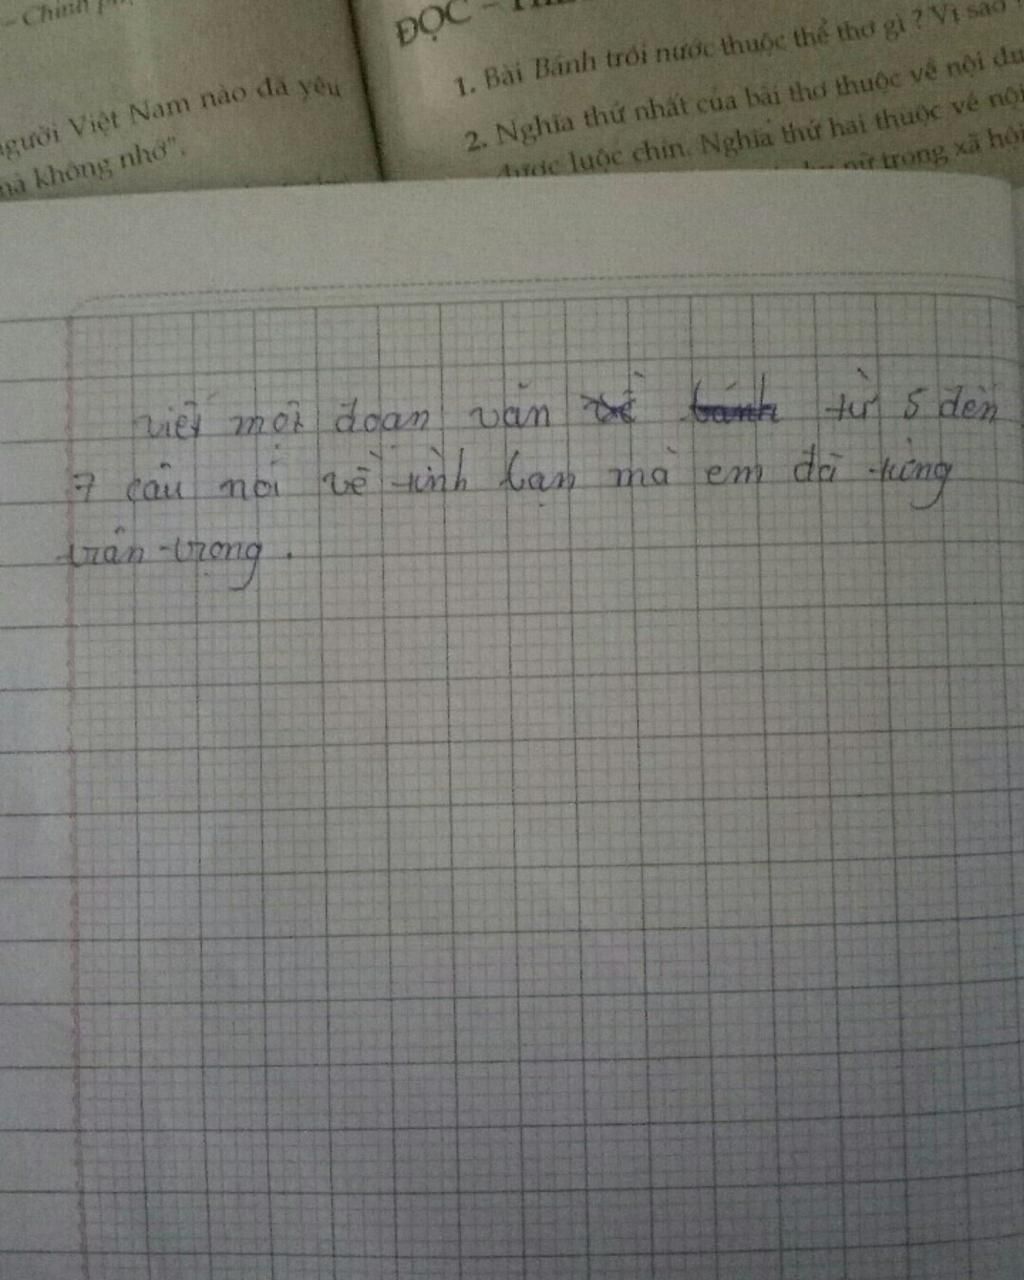 – Chính
người Việt Nam nào đã yêu
mà không nhớ".
ĐỌC –
1. Bài Bánh trôi nước thuộc thể thơ gì ? Vì sao
2. Nghĩa thứ nhất của bài thơ thuộc về nội du
được luộc chín. Nghĩa thứ hai thuộc về nội
nữ trong xã hội
viết một đoạn văn về bánh từ 5 đến
7 câu nói về tình bạn mà em đã từng
trân trọng.